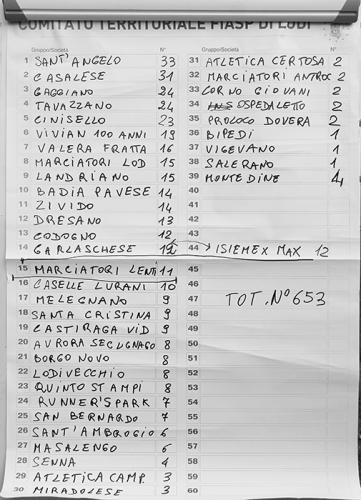 COMITATO TERRITORIALE FIASP DI LODI
Gruppo/Società N° Gruppo/Società N°
1 SANT'ANGELO 33
2 CASALESE 31
3 GAGGIANO 24
4 TAVAZZANO 24
5 CINISELLO 23
6 VIVIAN 100 ANNI 19
7 VALERA FRATTA 16
8 MARCIATORI LOD 15
9 LANDRIANO 15
10 BADIA PAVESE 14
11 ZIVIDO 14
12 DRESANO 13
13 CODOGNO 12
14 GARLASCHESE 12
15 MARCIATORI LENTI 11
16 CASELLE LURANI 10
17 MELEGNANO 9
18 SANTA CRISTINA 9
19 CASTIRAGA VID 9
20 AURORA SECUGNAGO 8
21 BORGO NOVO 8
22 LODIVECCHIO 8
23 QUINTO STAMPI 8
24 RUNNER'S PARK 7
25 SAN BERNARDO 7
26 SANT'AMBROGIO 6
27 MASALENGO 6
28 SENNA 4
29 ATLETICA CAMP. 3
30 MIRADOLESE 3
31 ATLETICA CERTOSA 2
32 MARCIATORI ANTROC 2
33 CORNO GIOVANI 2
34 OSPEDALETTO 2
35 PROLOCO DOVERA 2
36 BIPEDI 1
37 VIGEVANO 1
38 SALERANO 1
39 MONTEDINE 1
40
41
42
43
44 → ISIEMEX MAX 12
45
46
47 TOT. N° 653
48
49
50
51
52
53
54
55
56
57
58
59
60